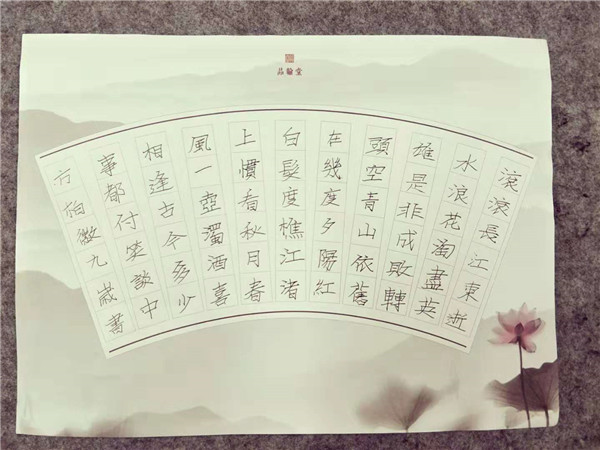 品翰堂
滾滾長江東逝
水浪花淘盡英
雄是非成敗轉
頭空青山依舊
在幾度夕陽紅
白髮度樵江渚
上慣看秋月春
風一壺濁酒喜
相逢古今多少
事都付笑談中
方柏九歲書